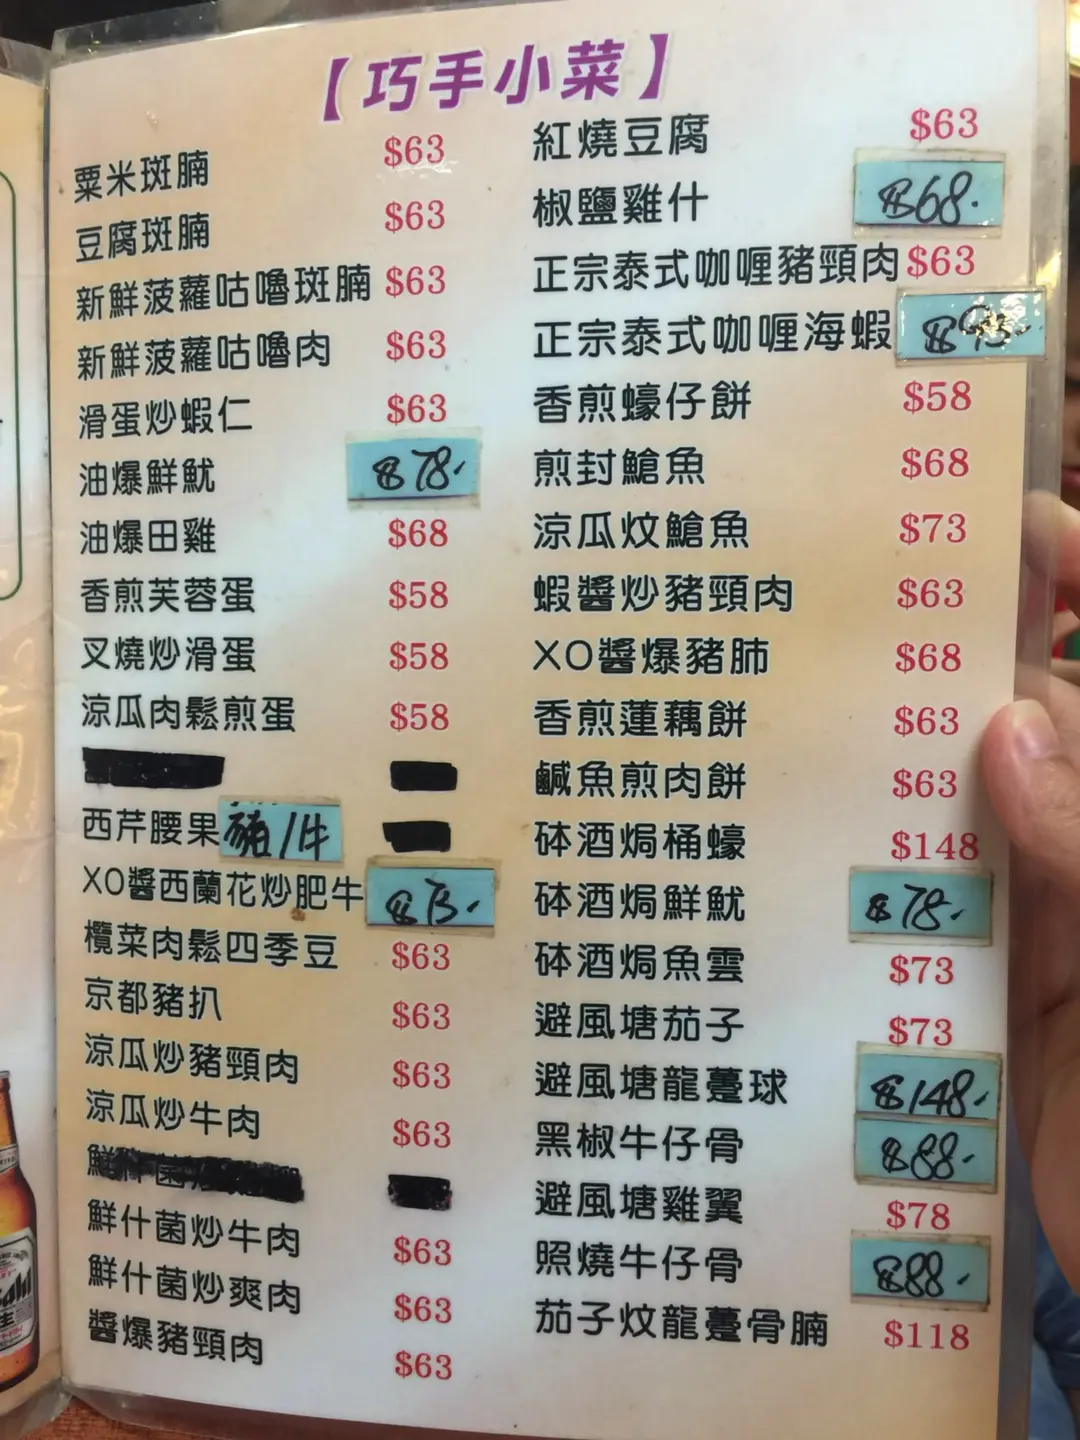 【巧手小菜】
粟米斑腩 $63
豆腐斑腩 $63
新鮮菠蘿咕嚕斑腩 $63
新鮮菠蘿咕嚕肉 $63
滑蛋炒蝦仁 $63
油爆鮮魷 $78.
油爆田雞 $68
香煎芙蓉蛋 $58
叉燒炒滑蛋 $58
涼瓜肉鬆煎蛋 $58
西芹腰果豬/牛
XO醬西蘭花炒肥牛 $73.
欖菜肉鬆四季豆 $63
京都豬扒 $63
涼瓜炒豬頸肉 $63
涼瓜炒牛肉 $63
鮮什菌炒牛肉 $63
鮮什菌炒爽肉 $63
醬爆豬頸肉 $63
紅燒豆腐 $63
椒鹽雞什 $68.
正宗泰式咖喱豬頸肉 $63
正宗泰式咖喱海蝦
香煎蠔仔餅 $58
煎封鱠魚 $68
涼瓜炆鱠魚 $73
蝦醬炒豬頸肉 $63
XO醬爆豬肺 $68
香煎蓮藕餅 $63
鹹魚煎肉餅 $63
砵酒焗桶蠔 $148
砵酒焗鮮魷 $78.
砵酒焗魚雲 $73
避風塘茄子 $73
避風塘龍躉球 $148.
黑椒牛仔骨 $88.
避風塘雞翼 $78
照燒牛仔骨 $88.
茄子炆龍躉骨腩 $118